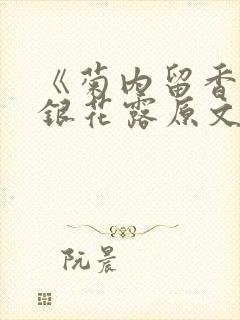 《菊内留香
銀花露原文
阮晨